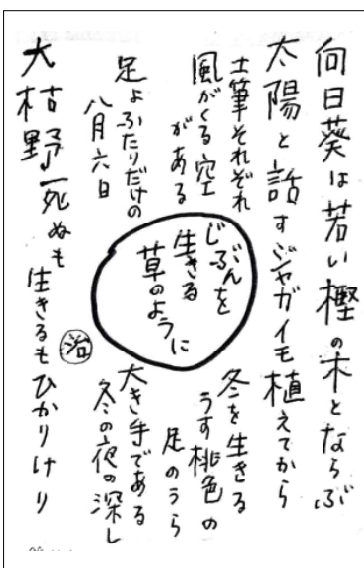 向日葵は若い樫の木とならぶ
太陽と話すジャガイモ植えてから
土筆それぞれ
風がくる空
がある
足よふたりだけの
八月六日
じぶんを
生きる
草のように
冬を生きる
うす桃色の
足のうら
大き手である
冬の夜の深し
大枯野死ぬも
生きるもひかりけり
治